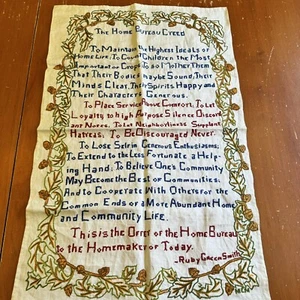 The Home Bureau Creed
To Maintain the Highest Ideals of
Home Life, To Count Children the Most
Important of Crops To so Mother Them
That Their Bodies maybe Sound, Their
Minds Clear, Their Spirits Happy and
Their Characters Generous.
To Place Service Above Comfort, To Let
Loyalty to high Purpose Silence Discord
ant Notes. To Let Neighborliness Supplant
Hatreds, To Be Discouraged Never.
To Lose Self in Generous Enthusiasms,
To Extend to the Less Fortunate a Help-
ing Hand. To Believe One's Community
May Become the Best of Communities:
And to Cooperate With Others for the
Common Ends of a More Abundant Home
and Community Life.
This is the Offer of the Home Bureau
to the Homemaker of Today.
-Ruby Green Smith